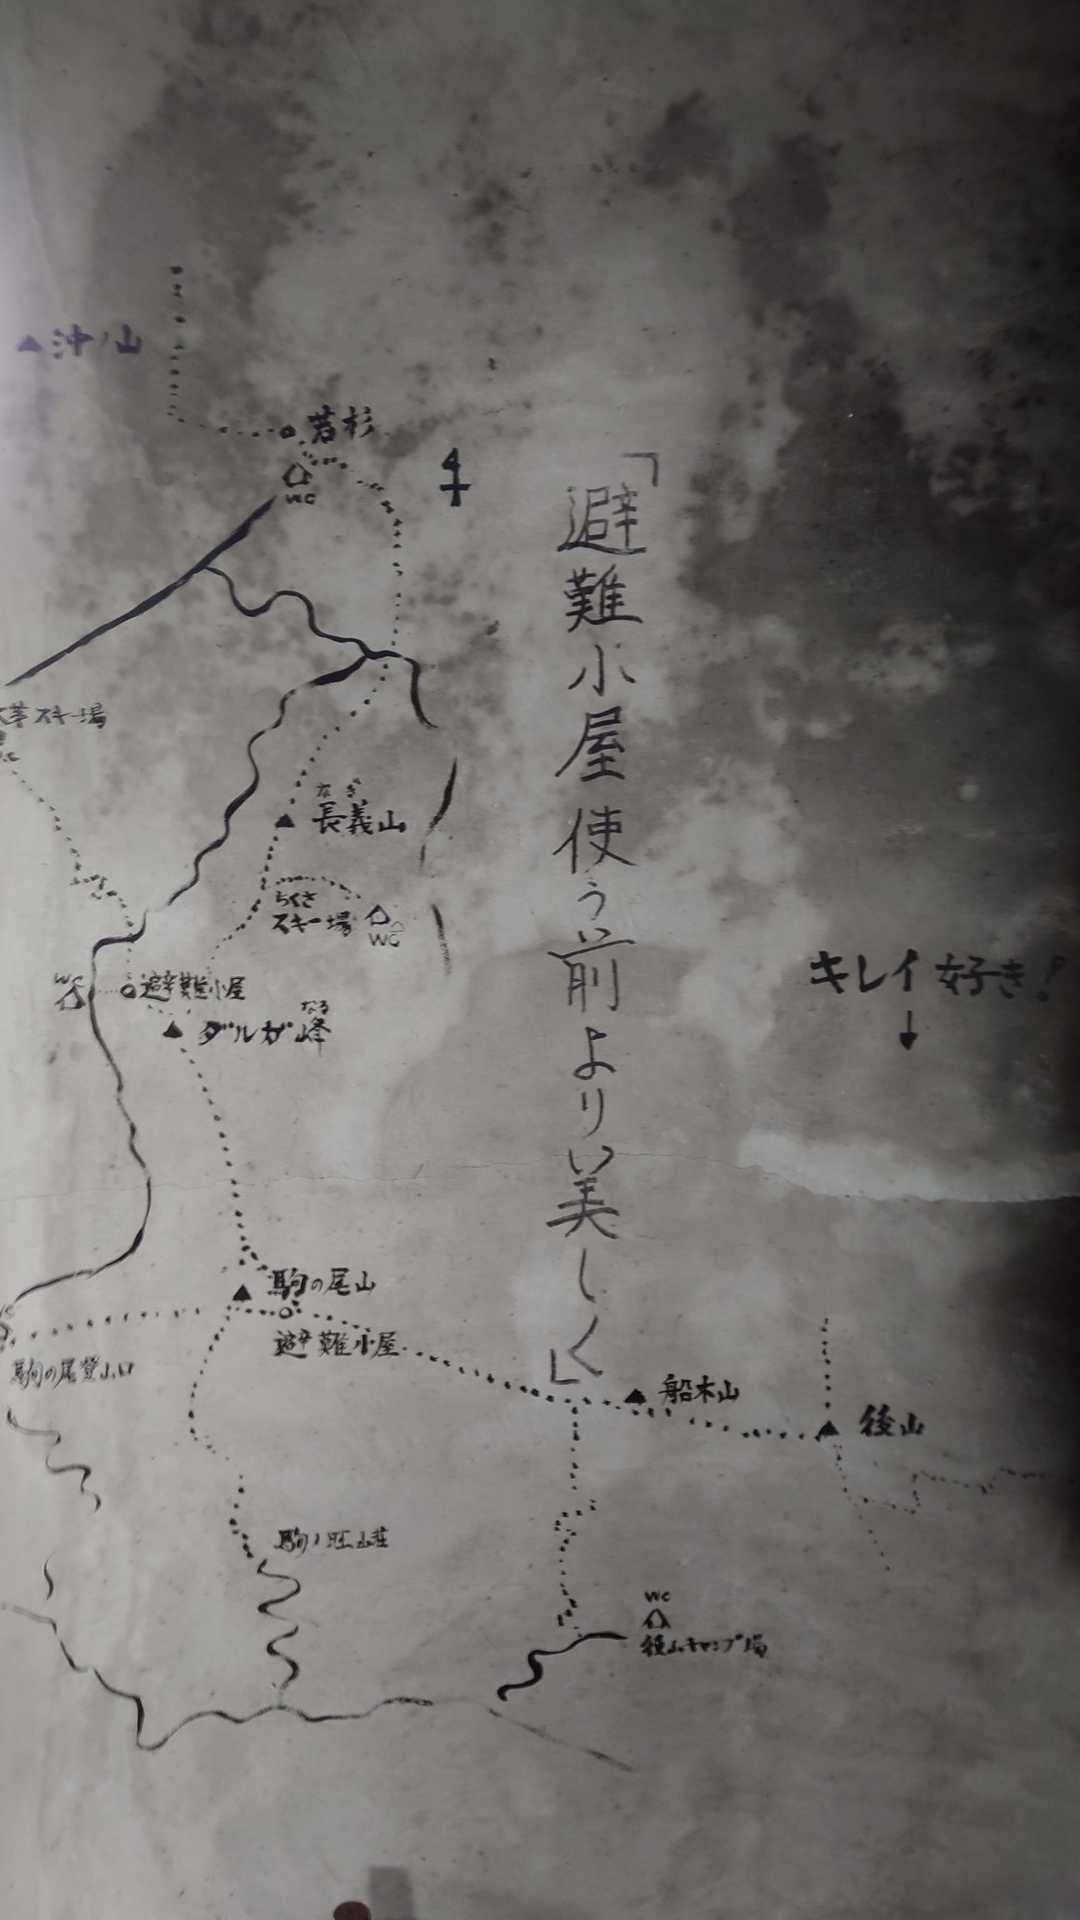 沖ノ山
若杉
WC
「避難小屋使う前より美しく」
スキー場
なぎ
長義山
ちくさ
スキー場
WC
キレイ好き!
↓
WC
避難小屋
なる
ダルガ峰
駒の尾山
避難小屋
駒の尾登山口
船木山
後山
WC
後山キャンプ場